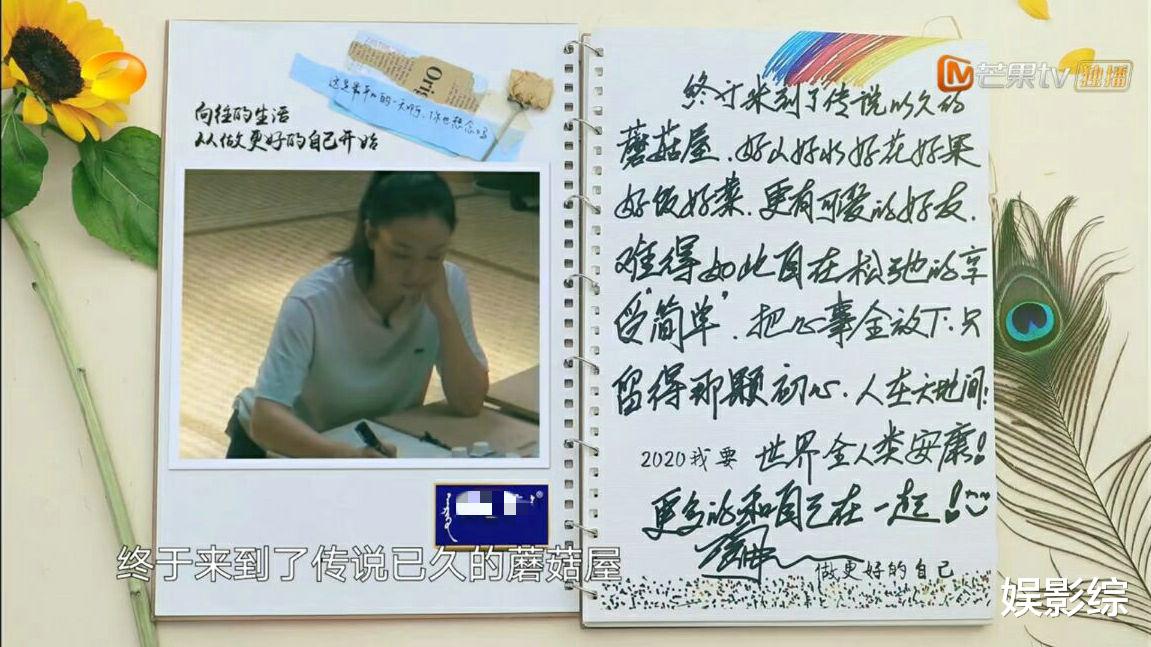 芒果tv 独播
向往的生活
从做更好的自己开始
Ori
这是最平和的一天啊,你也想念吗
终于来到了传说以久的
蘑菇屋.好山好水好花好果
好饭好菜.更有可爱的好友.
难得如此自在松弛的享
受"简单".把心事全放下:只
留得那颗初心.人在天地间:
2020我要 世界全人类安康!
更多的和自己在一起!
做更好的自己
终于来到了传说已久的蘑菇屋
娱影综